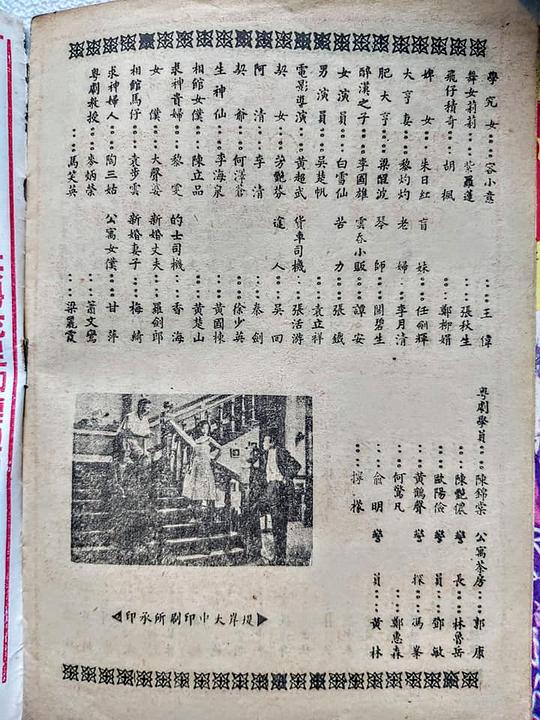 學咒女…容小意 …王偉
舞女莉莉…紫羅蓮 …張秋生
飛仔積奇…胡楓 …鄭柳娟
婢女…朱日紅 盲妹…任劍輝
大亨妻…黎灼灼 老婦…李月清
肥大亨…梁醒波 琴師…關碧生
醉漢之子…李國雄 雲吞小販…譚安
女演員…白雪仙 苦力…張鐵
男演員…吳楚帆 …袁立祥
電影導演…黃超武 貨車司機…張活游
契女…芳艷芬 途人…吳回
阿清…李清 …秦劍
契爺…何澤蒼 …徐少英
生神仙…李海泉 …黃國棟
相館女僕…陳立品 …黃楚山
求神貴婦…黎雯 的士司機…香海
女僕…大聲婆 新婚丈夫…羅劍郎
相館馬仔…袁步雲 新婚妻子…梅綺
求神婦人…陶三姑 公寓女僕…甘萍
粵劇教授…麥炳榮 …蕭文鶯
…馬笑英 …梁麗霞
粵劇學員…陳錦棠 公寓茶房…郭康
…陳艷儂 警長…林魯岳
…歐陽儉 警員…鄧敏
…黃鶴聲 警探…馮峯
…何驚凡 …鄭惠森
…俞明 警員…黃林
…檸檬
堤岸大中印刷所承印